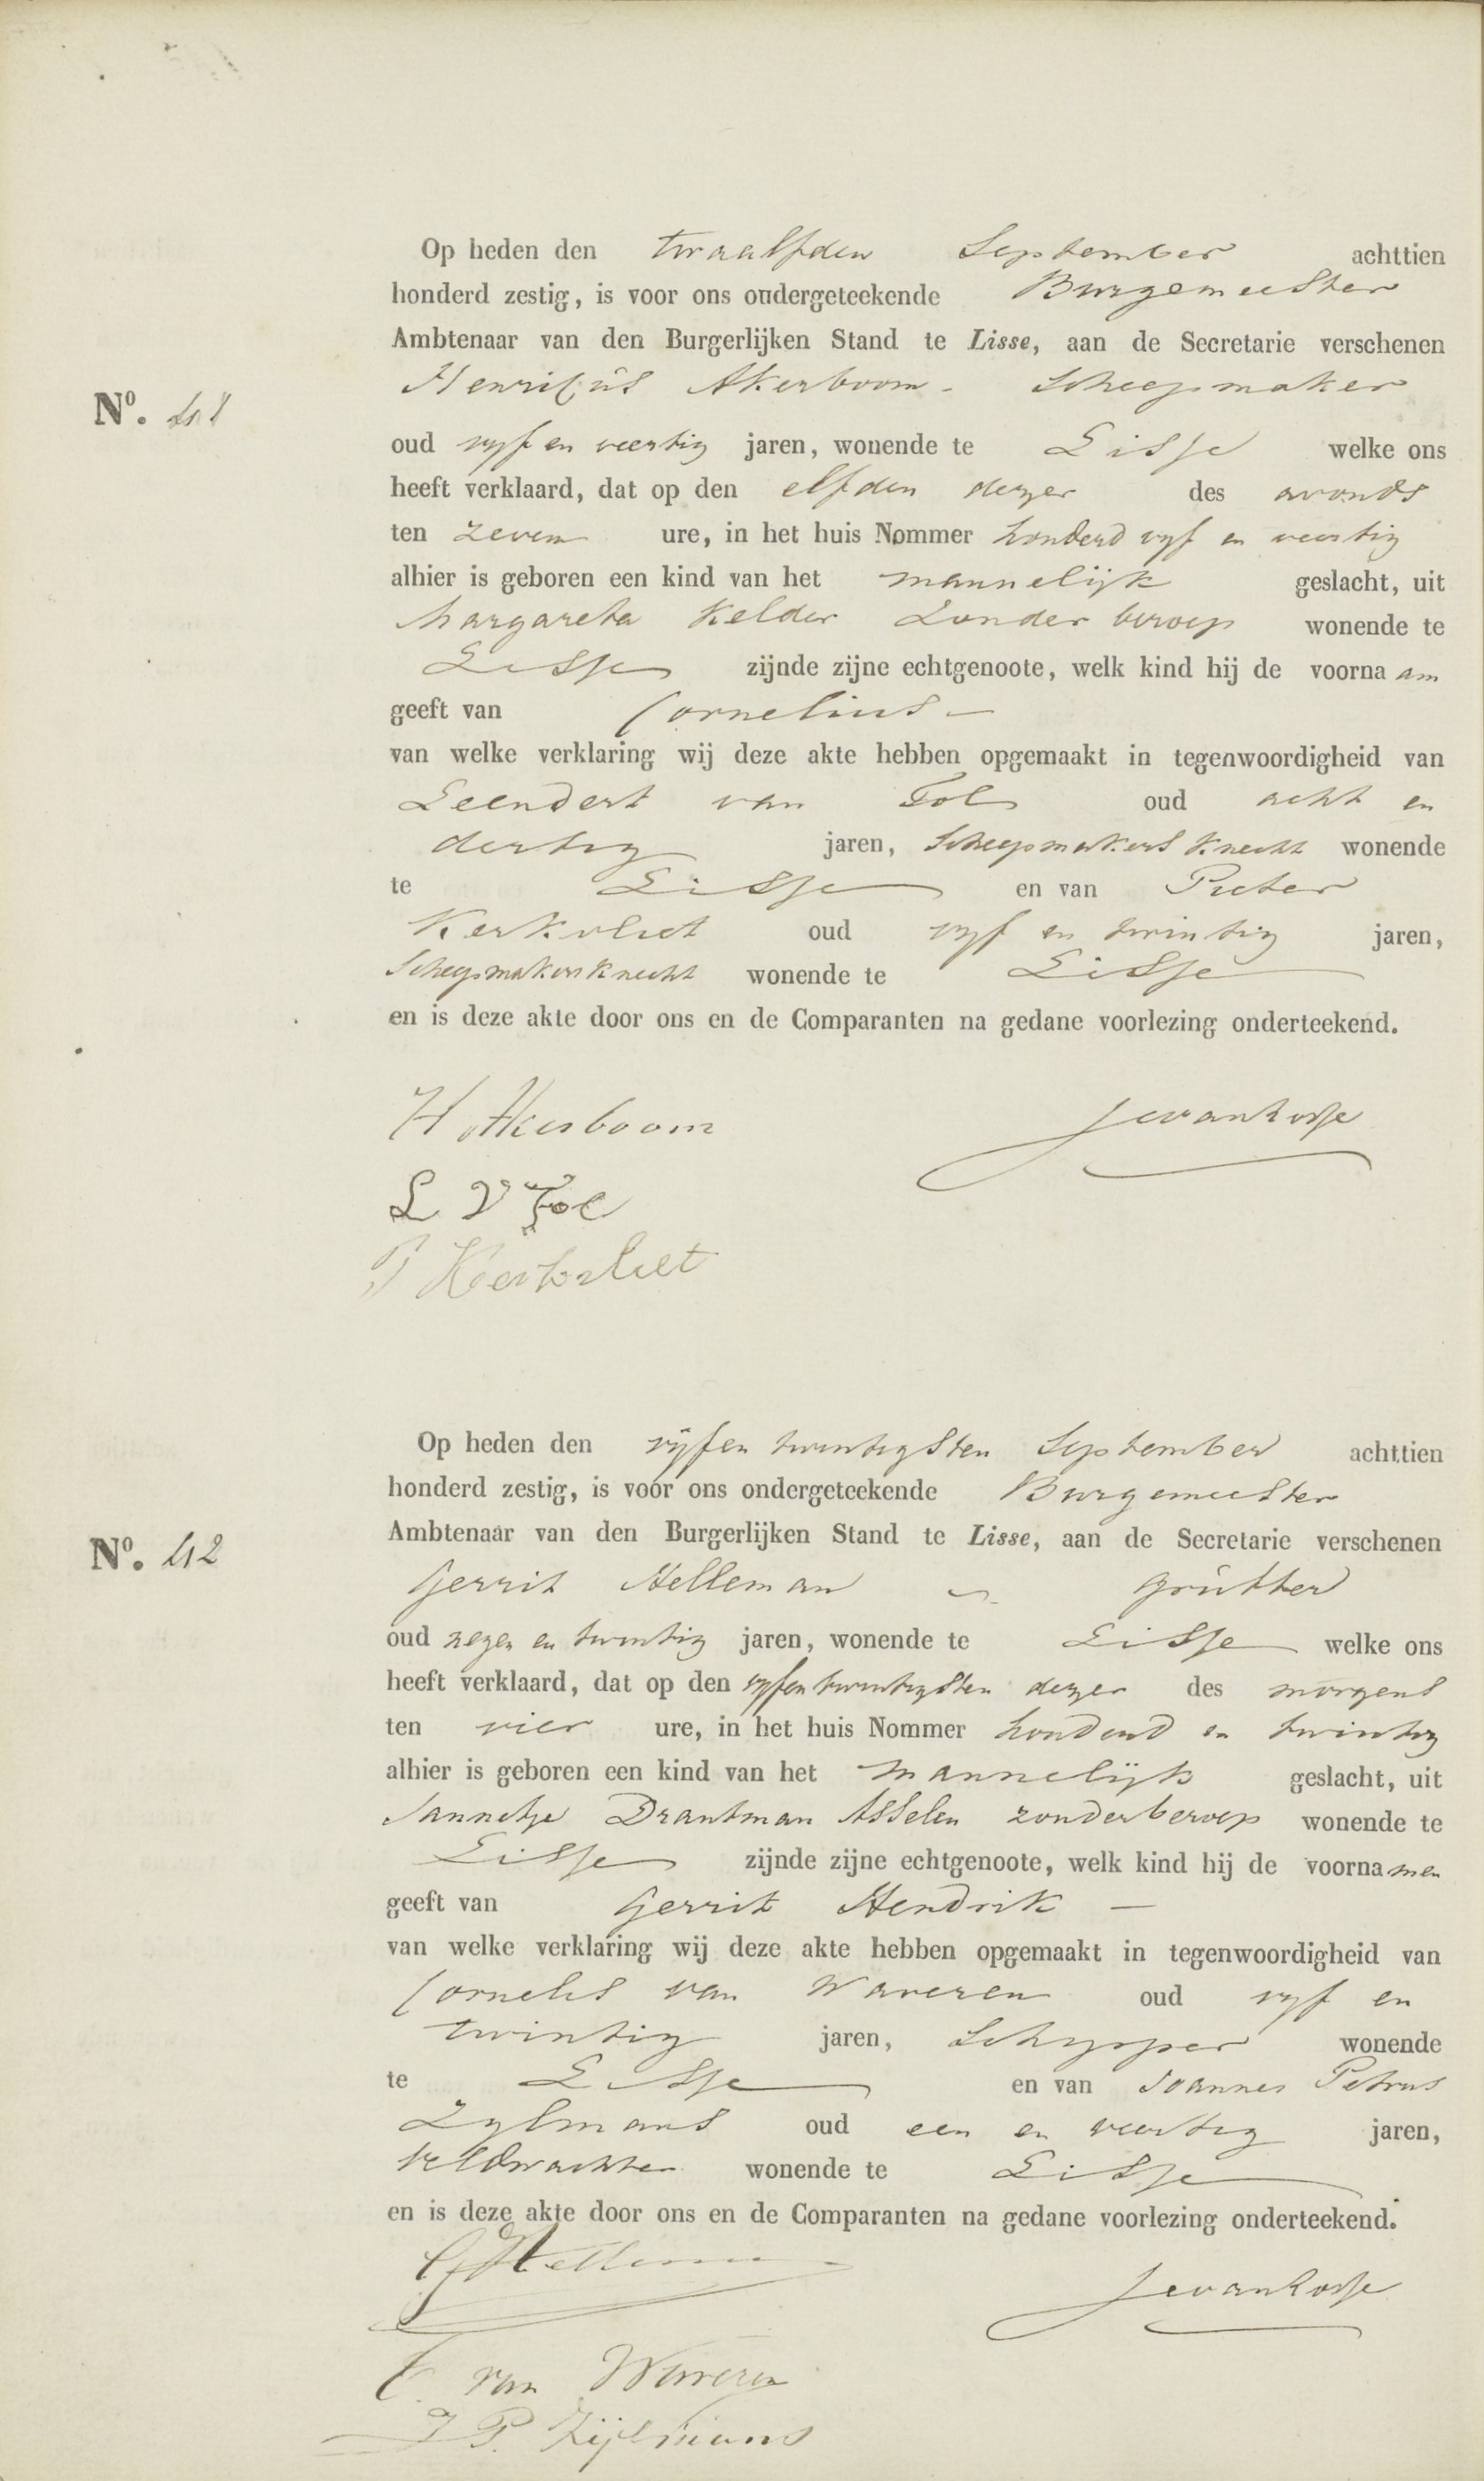 Op heden den twaalfden September achttien
honderd zestig, is voor ons ondergeteekende Burgemeester
Ambtenaar van den Burgerlijken Stand te Lisse, aan de Secretarie verschenen
Henricus Akerboom - Scheepmaker
Nº. 41
oud vyf en veertig jaren, wonende te Lisse welke ons
heeft verklaard, dat op den elfden dezer des avonds
ten zeven ure, in het huis Nommer honderd vyf en veertig
alhier is geboren een kind van het mannelijk geslacht, uit
Margareta Kelder zonder beroep wonende te
Lisse zijnde zijne echtgenoote, welk kind hij de voorna am
geeft van Cornelius -
van welke verklaring wij deze akte hebben opgemaakt in tegenwoordigheid van
Leendert van Tol oud acht en
dertig jaren, Scheepmakers knecht wonende
te Lisse en van Pieter
Kerkvliet oud vyf en twintig jaren,
Scheepmakersknecht wonende te Lisse
en is deze akte door ons en de Comparanten na gedane voorlezing onderteekend.
H Akerboom
L V Tol
P Kerkvliet
Op heden den vijfentwintigsten September achttien
honderd zestig, is voor ons ondergeteekende Burgemeester
Ambtenaar van den Burgerlijken Stand te Lisse, aan de Secretarie verschenen
Nº. 42
Gerrit Helleman - Grutter
oud negen en twintig jaren, wonende te Lisse welke ons
heeft verklaard, dat op den vyfentwintigsten dezer des morgens
ten vier ure, in het huis Nommer honderd en twintig
alhier is geboren een kind van het mannelijk geslacht, uit
Jannetje Drantman Asselen zonder beroep wonende te
Lisse zijnde zijne echtgenoote, welk kind hij de voorna men
geeft van Gerrit Hendrik -
van welke verklaring wij deze akte hebben opgemaakt in tegenwoordigheid van
Cornelis van Waveren oud vyf en
twintig jaren, Schipper wonende
te Lisse en van Joannes Petrus
Zylmans oud een en veertig jaren,
Veldwachter wonende te Lisse
en is deze akte door ons en de Comparanten na gedane voorlezing onderteekend.
G Helleman
C. van Waveren
J P. Zijlmans